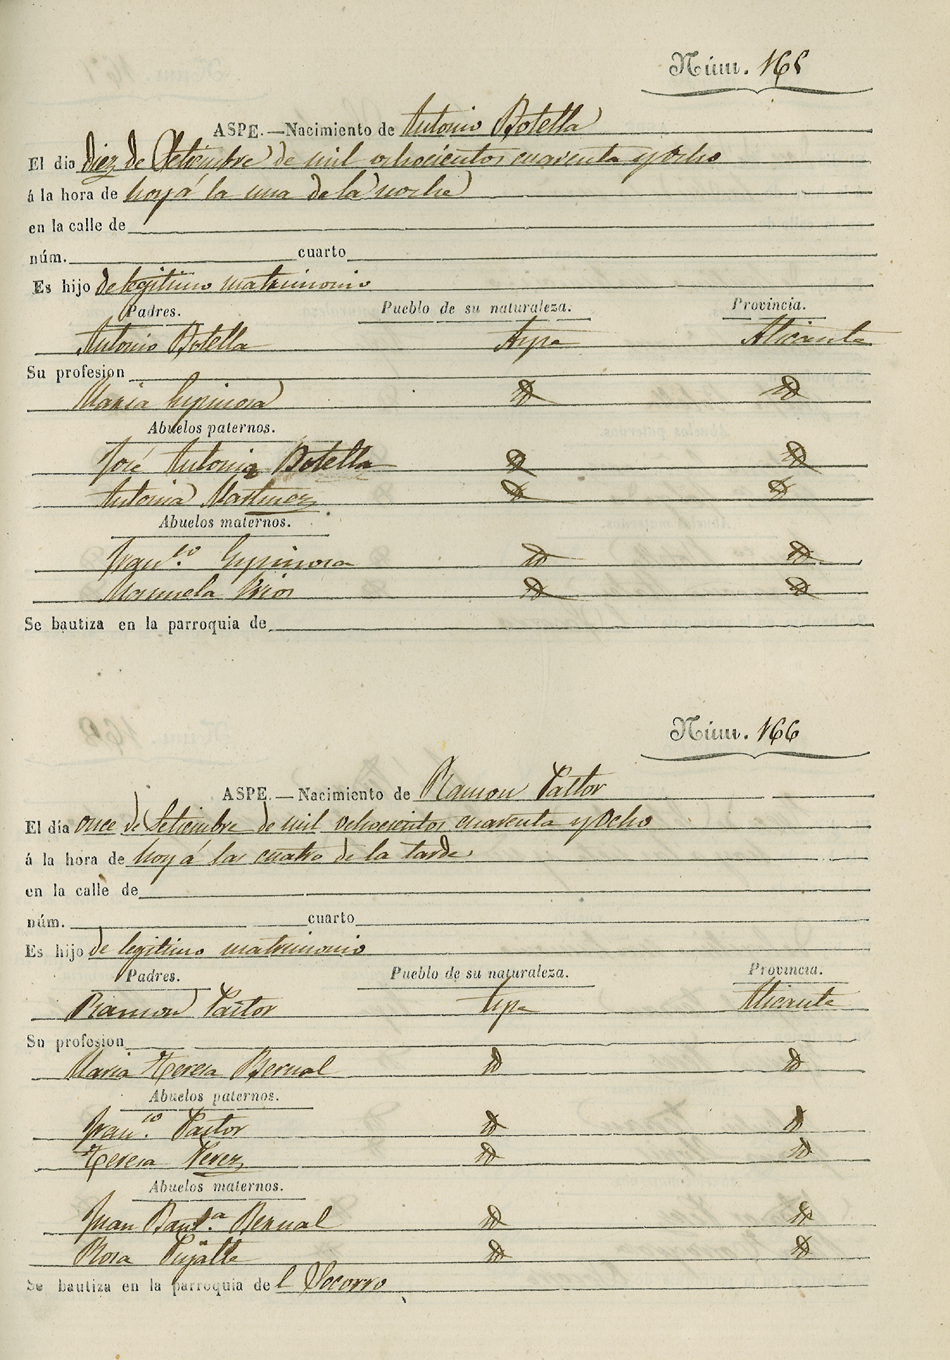 Núm. 165
ASPE.—Nacimiento de Antonio Botella
El día diez de Setiembre de mil ochocientos cuarenta y Ocho
á la hora de hoy á la una de la noche
en la calle de
núm. cuarto
Es hijo de legitimo matrimonio
Padres. Pueblo de su naturaleza. Provincia.
Antonio Botella Aspe Alicante
Su profesion
Maria Espinosa D D
Abuelos paternos.
José Antonio Botella D D
Antonia Martinez D D
Abuelos maternos.
Fran.co Espinosa D D
Manuela Rios D D
Se bautiza en la parroquia de
Núm. 166
ASPE.—Nacimiento de Ramon Pastor
El día once de Setiembre de mil ochocientos cuarenta y Ocho
á la hora de hoy á las cuatro de la tarde
en la calle de
núm. cuarto
Es hijo de legitimo matrimonio
Padres. Pueblo de su naturaleza. Provincia.
Ramon Pastor Aspe Alicante
Su profesion
Maria Teresa Bernal D D
Abuelos paternos.
Fran.co Pastor D D
Teresa Perez D D
Abuelos maternos.
Juan Baut.a Bernal D D
Rosa Pujalte D D
Se bautiza en la parroquia del Socorro